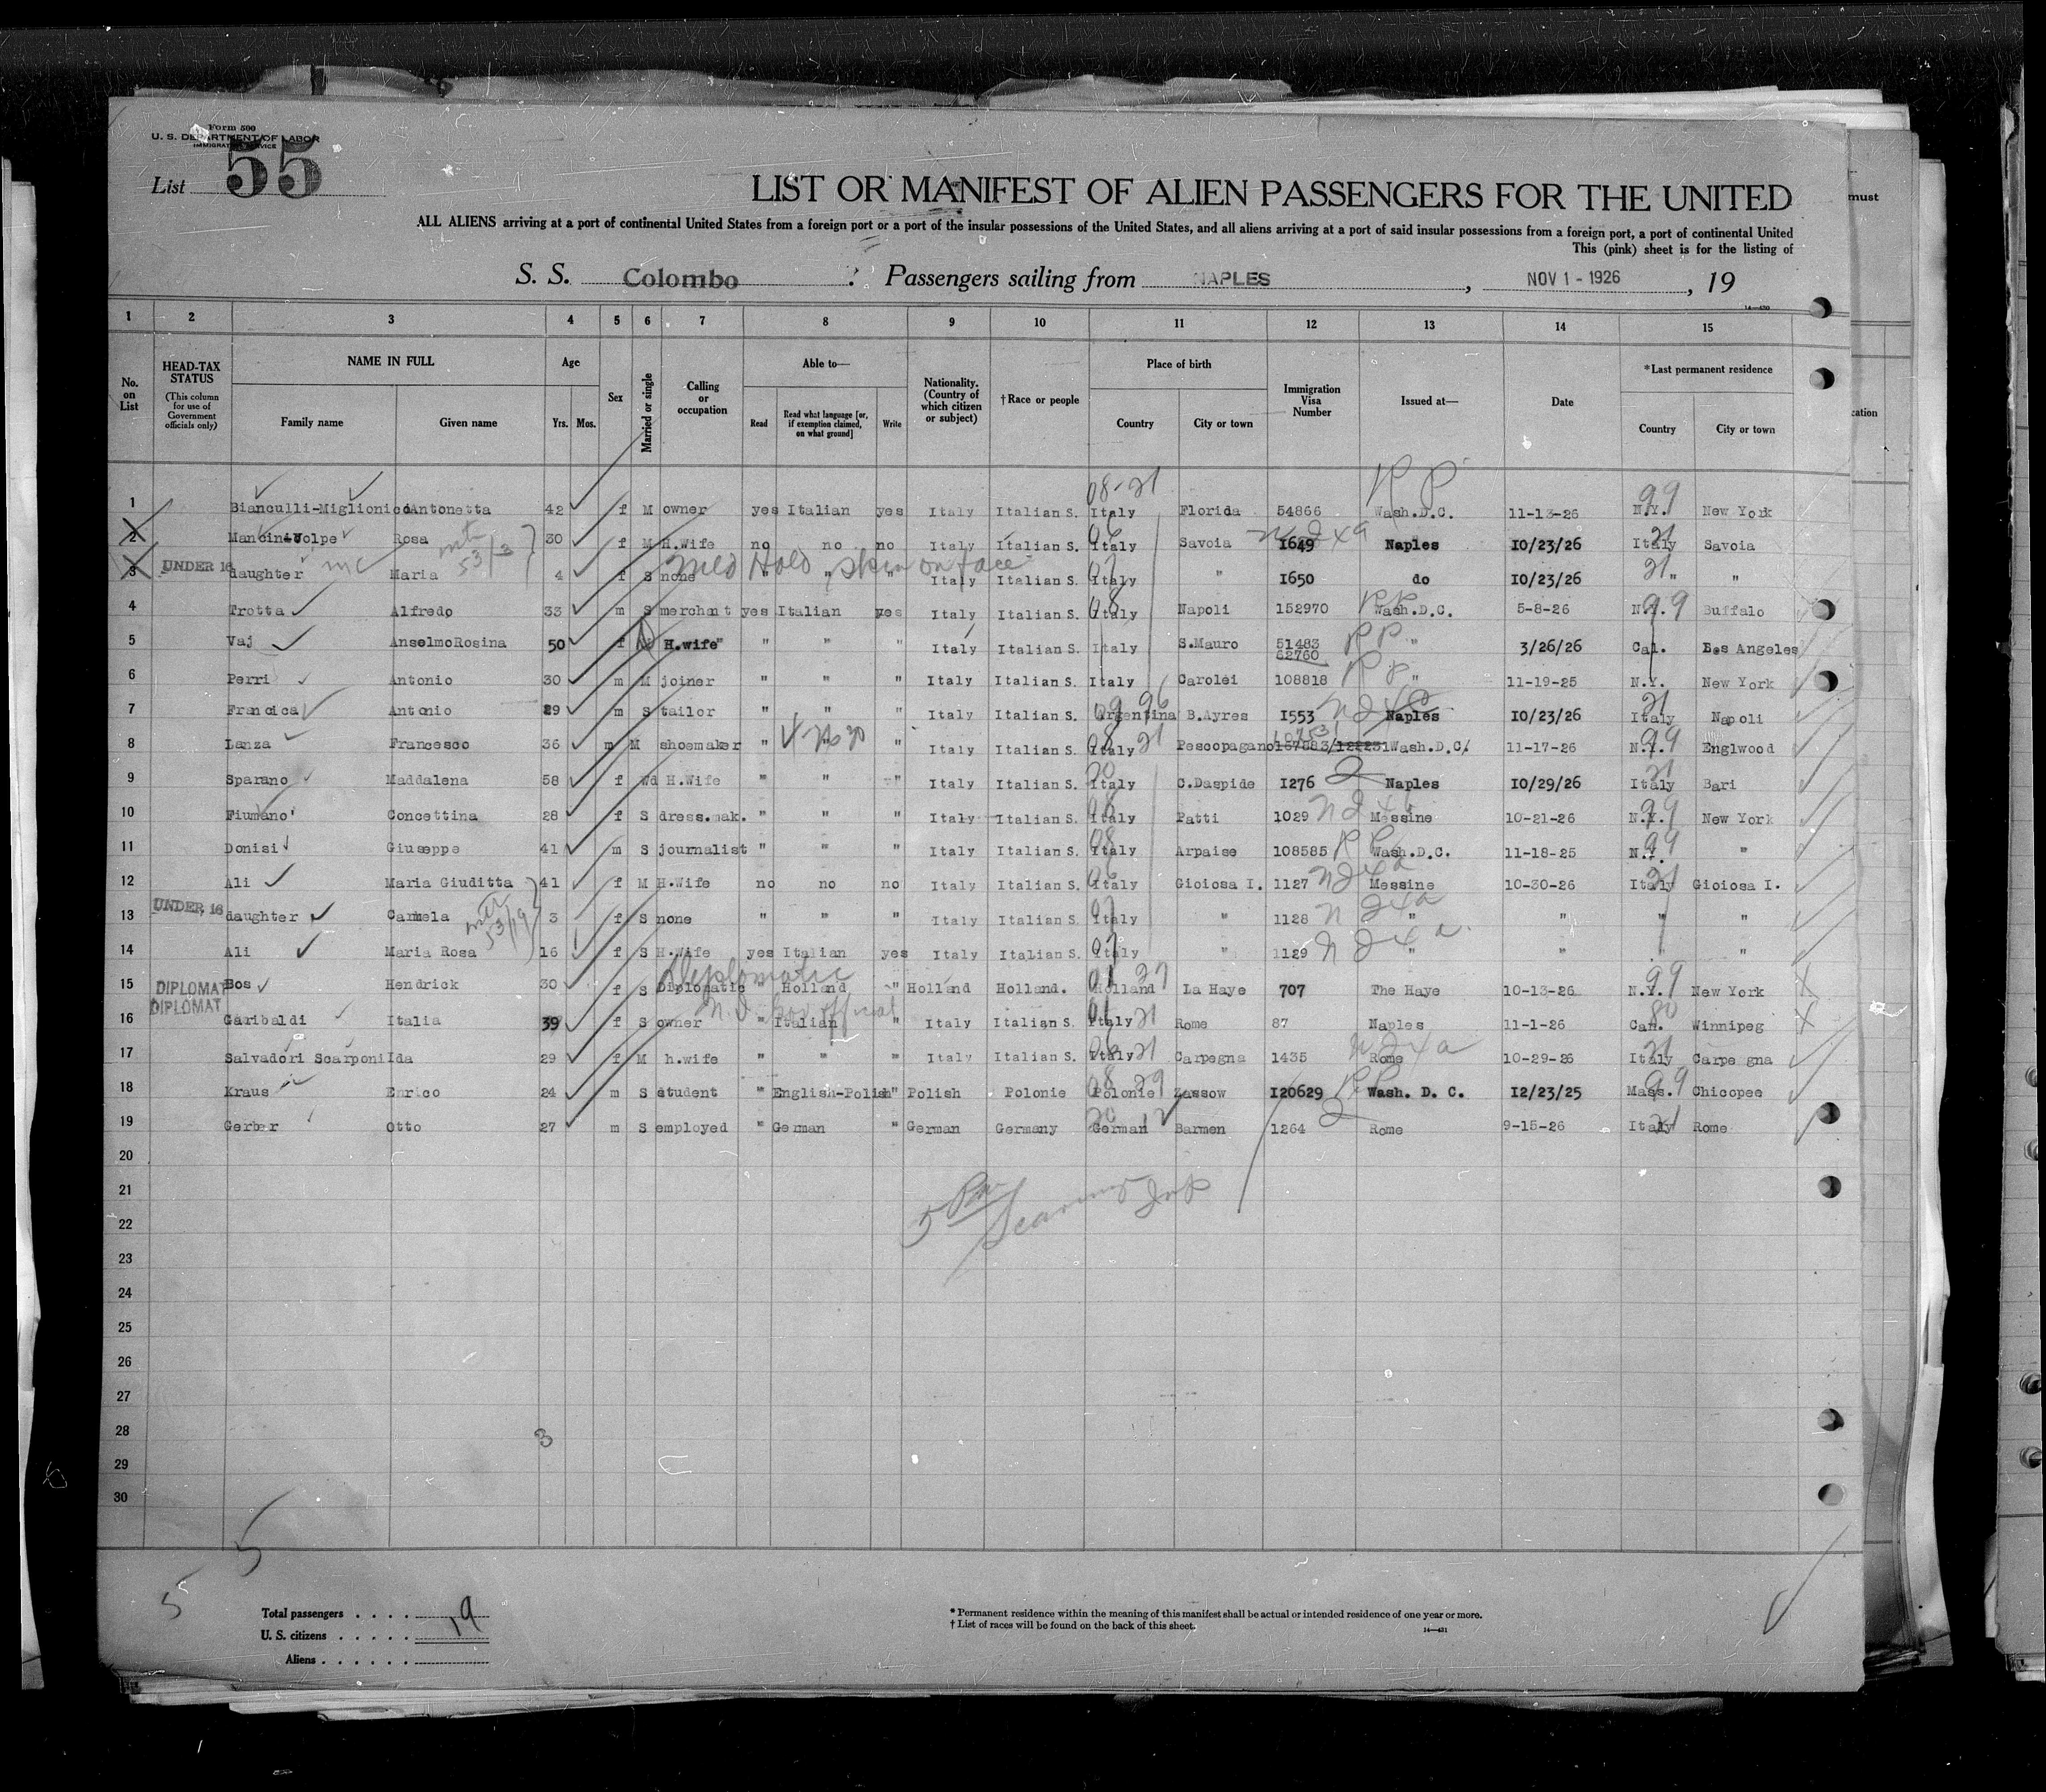 Form 500
U. S. DEPARTMENT OF LABOR
IMMIGRATION SERVICE
List 55
LIST OR MANIFEST OF ALIEN PASSENGERS FOR THE UNITED
must
ALL ALIENS arriving at a port of continental United States from a foreign port or a port of the insular possessions of the United States, and all aliens arriving at a port of said insular possessions from a foreign port, a port of continental United
This (pink) sheet is for the listing of
S. S. Colombo Passengers sailing from NAPLES, NOV 1 - 1926, 19
14—430
1 2 3 4 5 6 7 8 9 10 11 12 13 14 15
No. on List HEAD-TAX STATUS (This column for use of Government officials only) NAME IN FULL Family name Given name Age Yrs. Mos. Sex Married or single Calling or occupation Able to— Read Read what language [or, if exemption claimed, on what ground] Write Nationality. (Country of which citizen or subject) †Race or people Place of birth Country City or town Immigration Visa Number Issued at— Date *Last permanent residence Country City or town
cation
08-21 RP 99
1 Bianculli-Miglionico Antonetta 42 f M owner yes Italian yes Italy Italian S. Italy Florida 54866 Wash.D.C. 11-13-26 N.Y. New York
2 Mancini-Volpe Rosa 30 f M H.Wife no no no Italy Italian S. Italy Savoia 1649 Naples 10/23/26 Italy Savoia
Med Hold skin on face
3 UNDER 16 daughter Maria 4 f S none " " " Italy Italian S. Italy " 1650 do 10/23/26 " "
4 Trotta Alfredo 33 m S merchant yes Italian yes Italy Italian S. Italy Napoli 152970 Wash.D.C. 5-8-26 N.Y. Buffalo
5 Vaj AnselmoRosina 50 f H.wife" " " " Italy Italian S. Italy S.Mauro 51483 62760 RP " 3/26/26 Cal. Los Angeles
6 Perri Antonio 30 m M joiner " " " Italy Italian S. Italy Carolei 108818 RP " 11-19-25 N.Y. New York
7 Francica Antonio 29 m S tailor " " " Italy Italian S. Argentina B.Ayres 1553 Naples 10/23/26 Italy Napoli
8 Lanza Francesco 36 m M shoemaker " " " Italy Italian S. Italy Pescopagano Wash.D.C. 11-17-26 N.Y. Englwood
9 Sparano Maddalena 58 f Wd H.Wife " " " Italy Italian S. Italy C.Daspide 1276 Naples 10/29/26 Italy Bari
10 Fiumano Concettina 28 f S dress.mak. " " " Italy Italian S. Italy Patti 1029 Messine 10-21-26 N.Y. New York
11 Donisi Giuseppe 41 m S journalist " " " Italy Italian S. Italy Arpaise 108585 RP Wash.D.C. 11-18-25 N.Y. "
12 Ali Maria Giuditta 41 f M H.Wife no no no Italy Italian S. Italy Gioiosa I. 1127 Messine 10-30-26 Italy Gioiosa I.
13 UNDER 16 daughter Carmela 3 f S none " " " Italy Italian S. Italy " 1128 " " " "
14 Ali Maria Rosa 16 f S H.Wife yes Italian yes Italy Italian S. Italy " 1129 " " " "
Diplomatic
15 DIPLOMAT Bos Hendrick 30 f S Diplomatic " Holland " Holland Holland. Holland La Haye 707 The Haye 10-13-26 N.Y. New York
16 DIPLOMAT Garibaldi Italia 39 f S owner " Italian " Italy Italian S. Italy Rome 87 Naples 11-1-26 Can. Winnipeg
17 Salvadori Scarponi Ida 29 f M h.wife " " " Italy Italian S. Italy Carpegna 1435 Rome 10-29-26 Italy Carpegna
18 Kraus Enrico 24 m S student " English-Polish " Polish Polonie Polonie Zassow 120629 RP Wash. D. C. 12/23/25 Mass. Chicopee
19 Gerber Otto 27 m S employed " German " German Germany German Barmen 1264 Rome 9-15-26 Italy Rome
20
21
22
23
24
25
26
27
28
29
30
3
5
5
Total passengers . . . . 19
U. S. citizens . . . . .
Aliens . . . . . .
* Permanent residence within the meaning of this manifest shall be actual or intended residence of one year or more.
† List of races will be found on the back of this sheet.
14—431